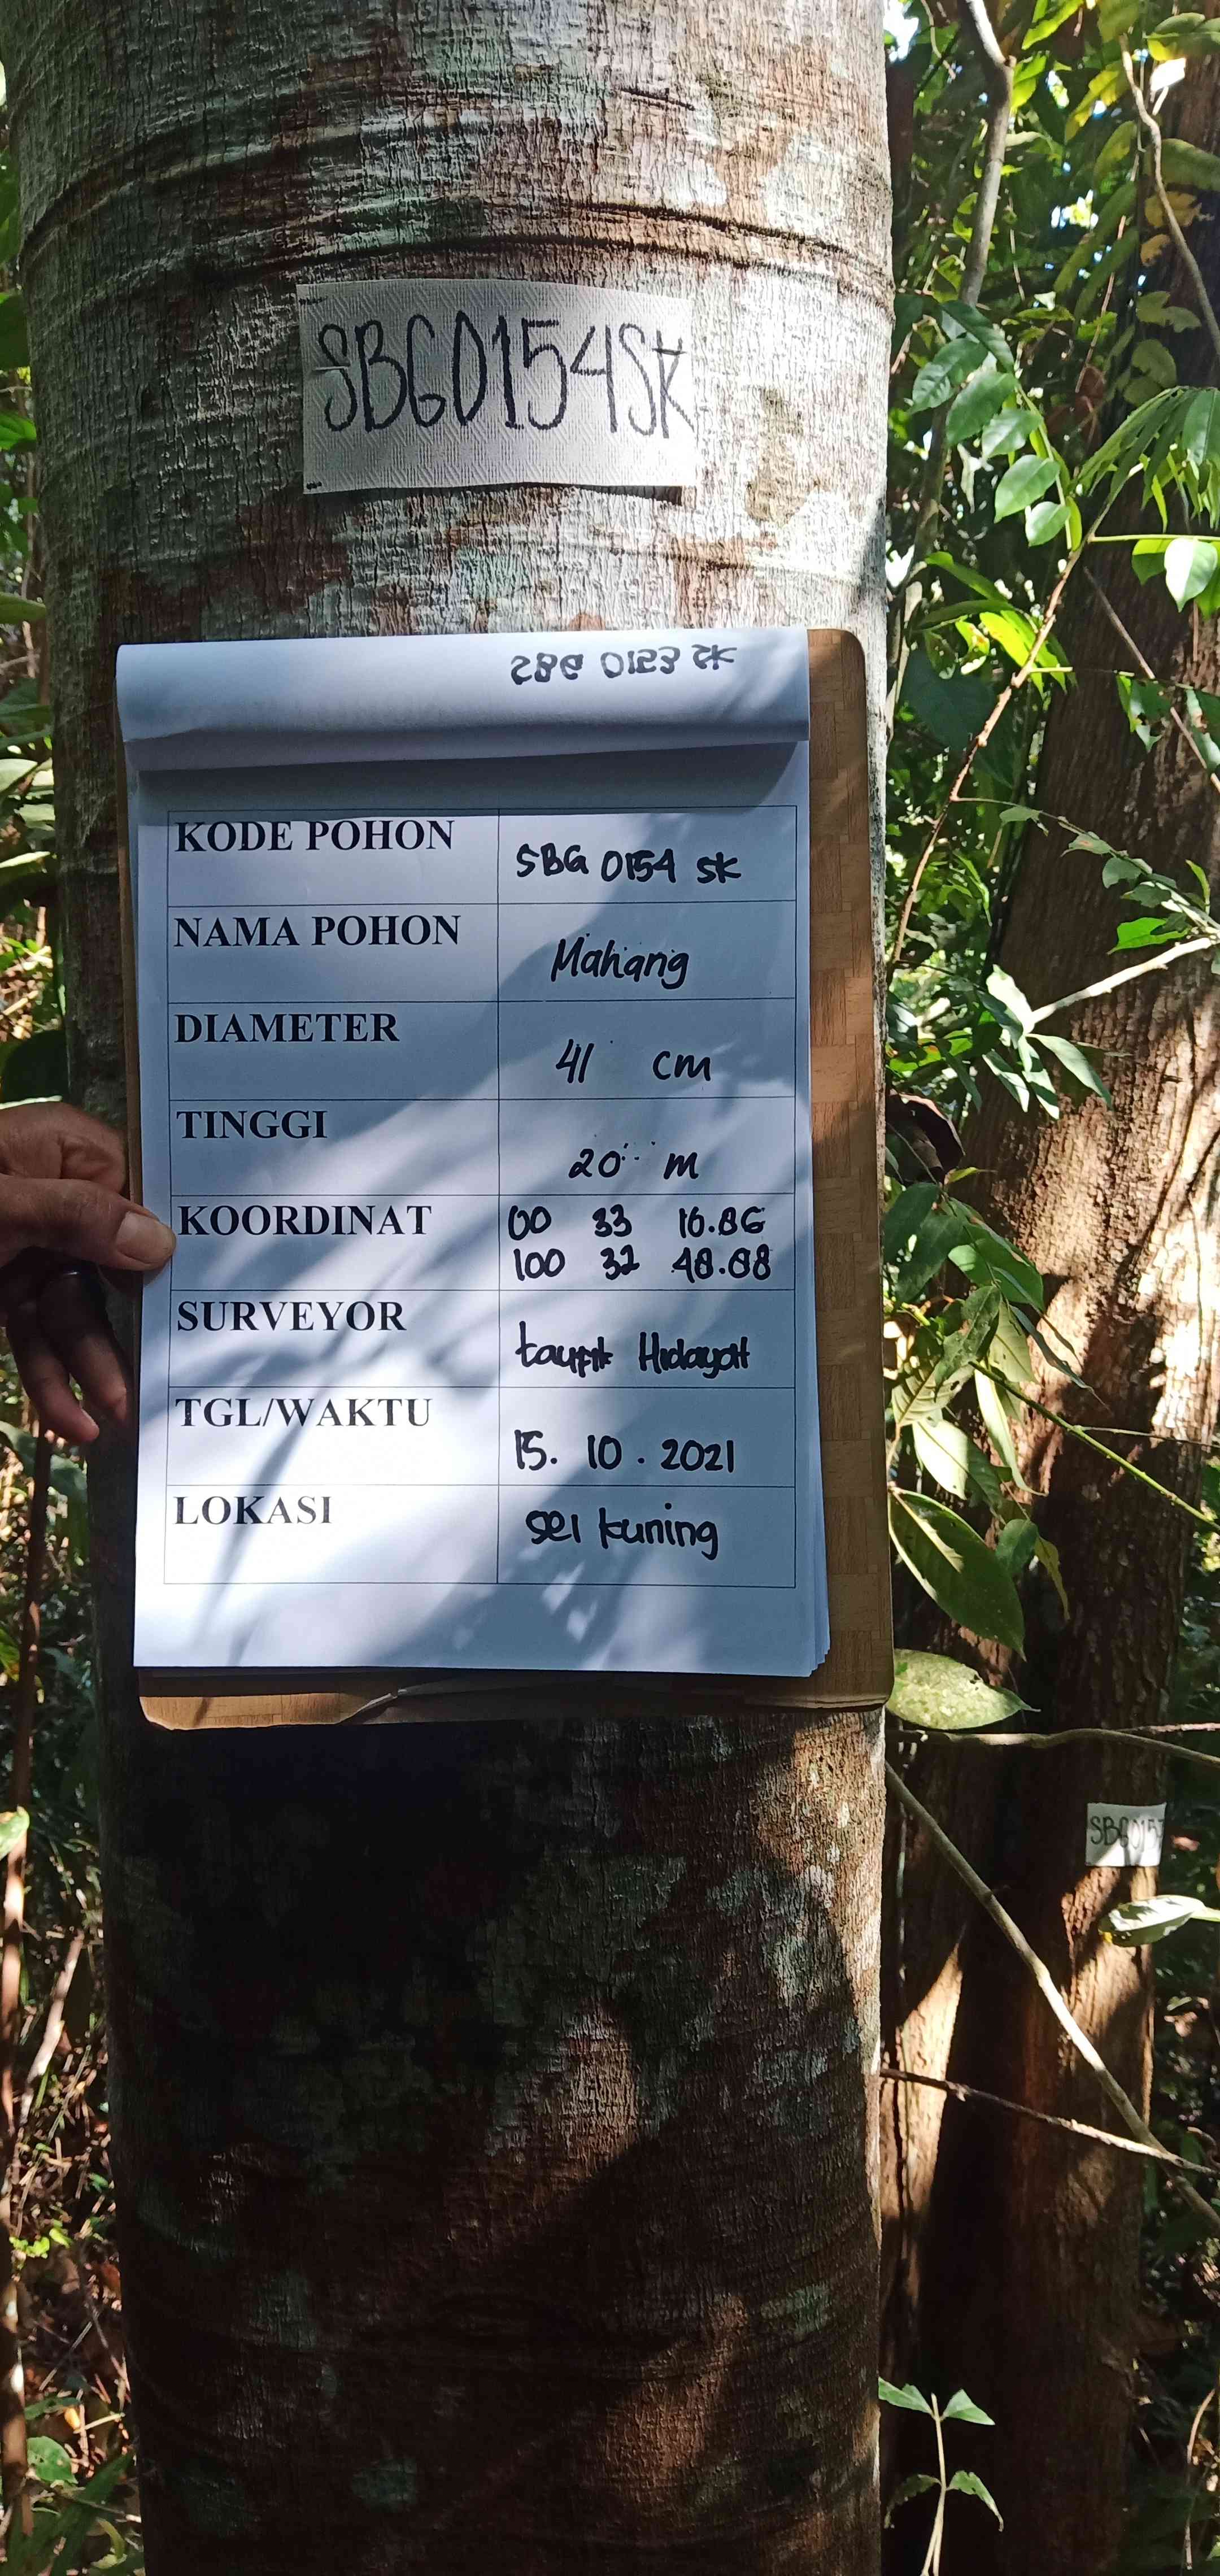 SBG0154SK
SBG 0153 SK
KODE POHON
SBG 0154 SK
NAMA POHON
Mahang
DIAMETER
41 cm
TINGGI
20 m
KOORDINAT
00 33 16.86
100 32 48.88
SURVEYOR
taufik Hidayat
TGL/WAKTU
15. 10. 2021
LOKASI
sei kuning
SBG015